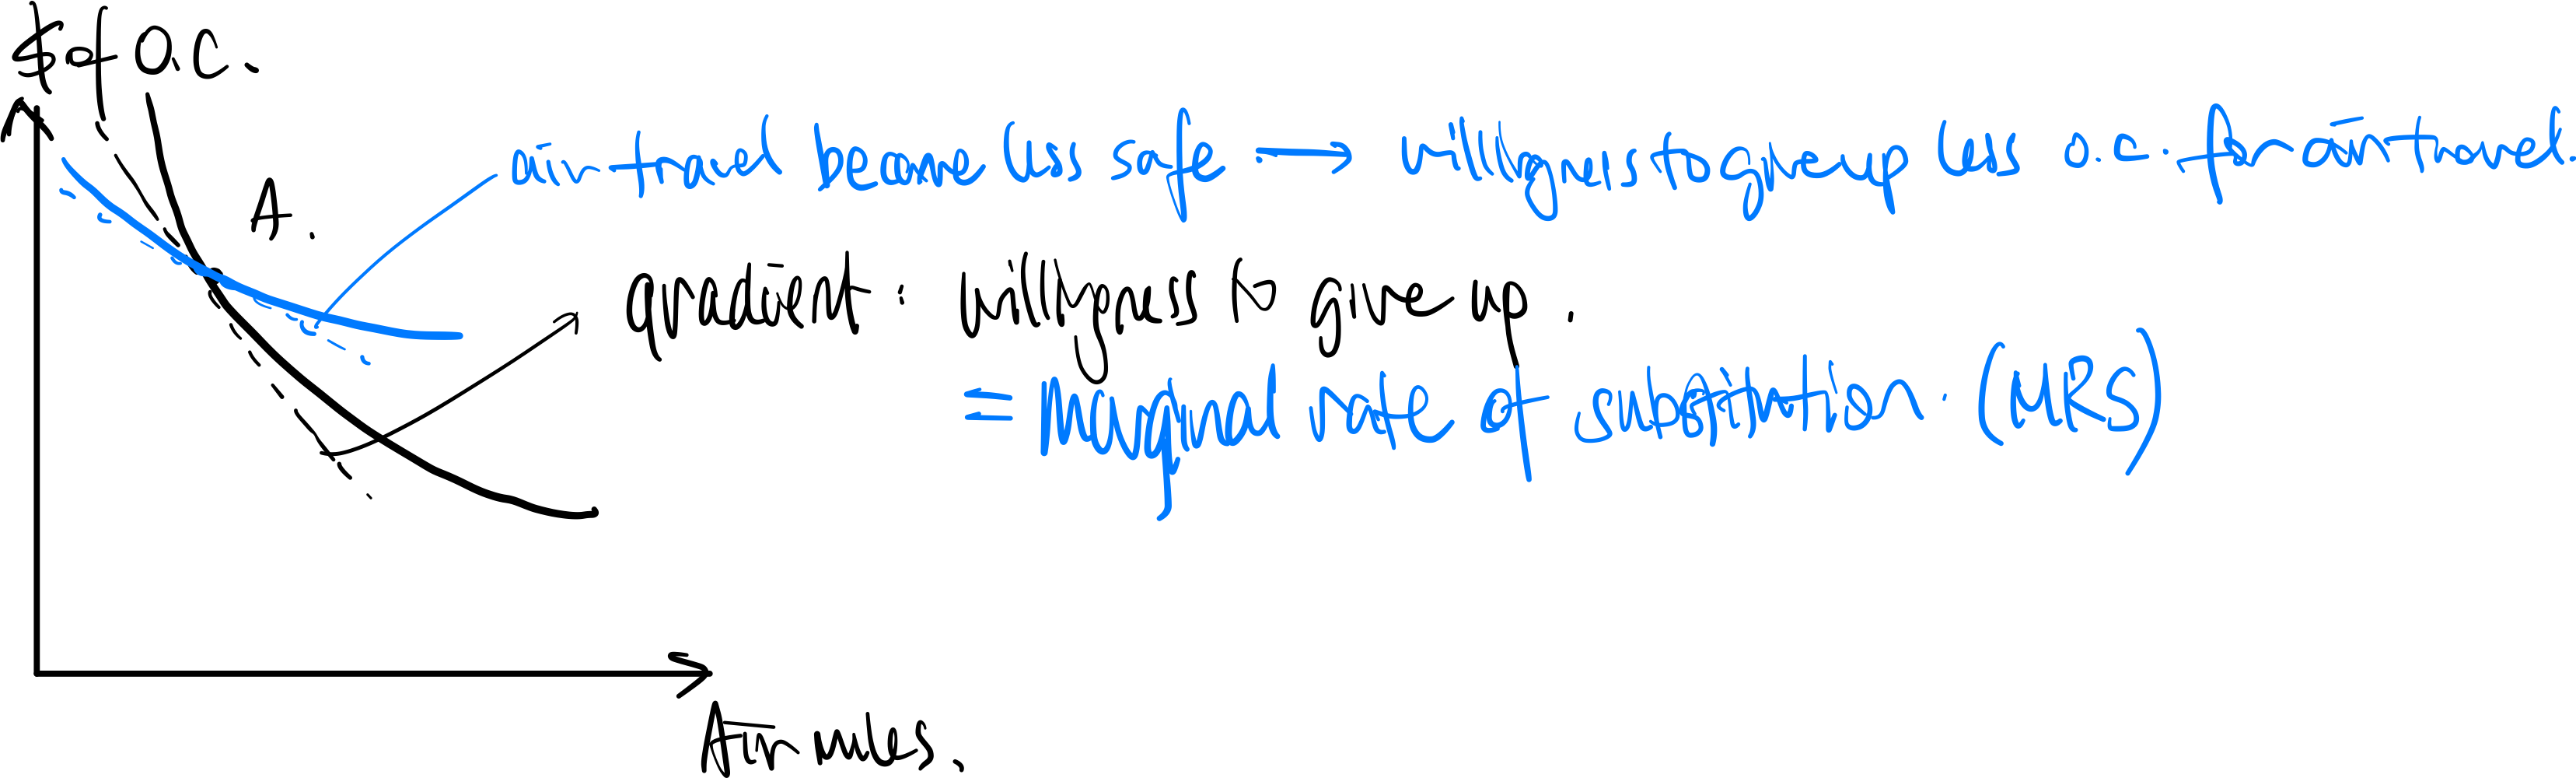 $ of O.C.
air travel become less safe. → willigness to give up less o.c. for air travel.
A.
gradient: willigness to give up.
= Marginal rate of substitution. (MRS)
Air miles.